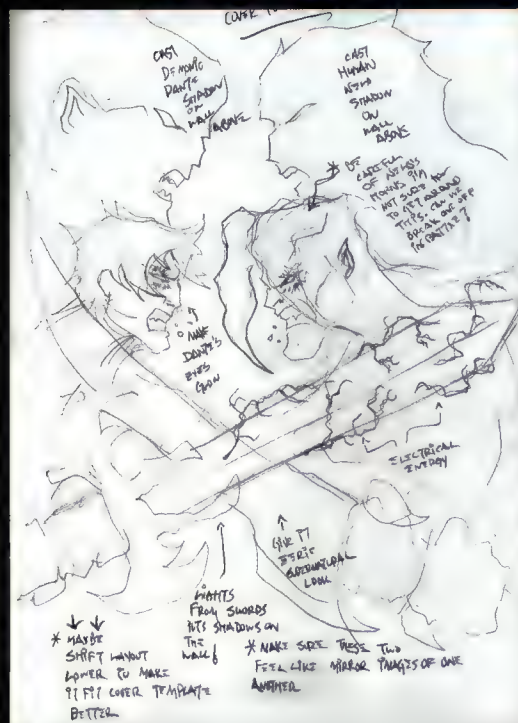 COVER TO
CAST
DEMONIC
DANTE
SHADOW
ON
WALL
ABOVE
CAST
HUMAN
NELO
SHADOW
ON
WALL
ABOVE
* BE
CAREFUL
OF NELO'S
HORNS I'M
NOT SURE HOW
TO GET AROUND
THIS. CAN WE
BREAK ONE OFF
IN BATTLE?
MAKE
DANTE'S
EYES
GLOW
ELECTRICAL
ENERGY
GIVE IT
EERIE
SUPERNATURAL
LOOK
LIGHTS
FROM SWORDS
PUTS SHADOWS ON
THE
WALL!
* MAYBE
SHIFT LAYOUT
LOWER TO MAKE
IT FIT COVER TEMPLATE
BETTER
* MAKE SURE THESE TWO
FEEL LIKE MIRROR IMAGES OF ONE
ANOTHER